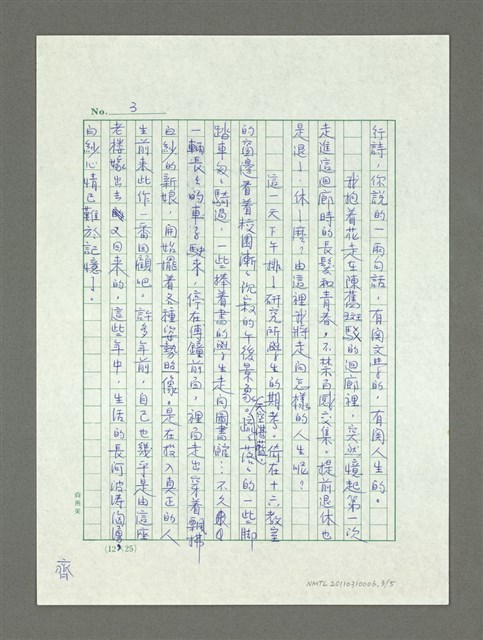 No. 3
行詩，你說的一兩句話，有關文學的，有關人生的。
我抱着花走在陳舊斑駁的迴廊裡，突然憶起第一次
走進這迴廊時的長髮和青春，不禁百感交集。提前退休也
是退——休——麼？由這裡我將走向怎樣的人生呢？
這一天下午排了研究所學生的期考。倚在十六教室
的窗邊看着校園漸漸沉寂的午後景象。天空湛藍，疏疏落落的一些腳
踏車匆匆騎過，一些捧着書的學生走向圖書館…不久
一輛長長的車子駛來，停在傅鐘前面，裡面走出穿着飄拂
白紗的新娘，開始擺着各種姿勢的像。是在投入真正的人
生前來此作一番回顧吧，許多年前，自己也幾乎是由這座
老樓嫁出去又回來的，這些年中，生活的長河波濤洶湧，
白紗心情已難於記憶——。
(12×25)
齊
NMTL20110310006, 3/5